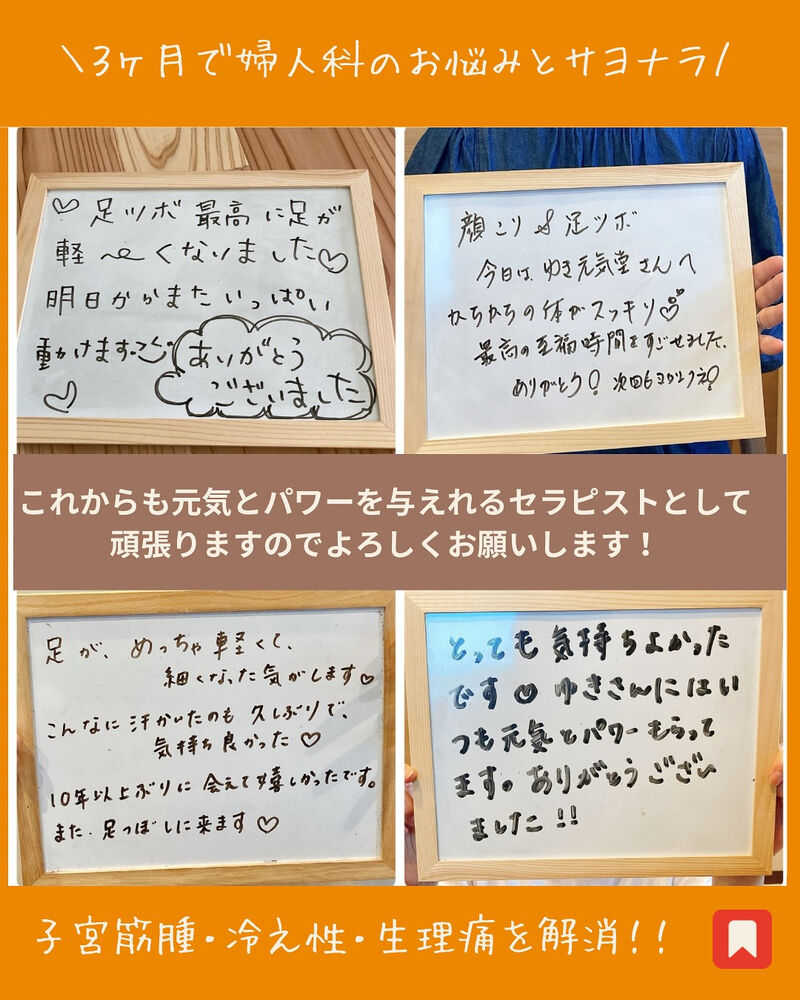 \3ヶ月で婦人科のお悩みとサヨナラ/
足ツボ最高に足が
軽〜くなりました♡
明日からまたいっぱい
動かけます。
ありがとう
ございました
顔こり & 足ツボ
今日は、ゆき元気堂さんへ
かちかちの体がスッキリ♡
最高の至福時間をすごせました。
ありがとう! 次回も
これからも元気とパワーを与えれるセラピストとして
頑張りますのでよろしくお願いします!
足が、めっちゃ軽くて、
細くなった気がします♡
こんなに汗かいたのも久しぶりで、
気持ち良かった♡
10年以上ぶりに会えて嬉しかったです。
また、足つぼしに来ます♡
とっても気持ちよかった
です♡ ゆきさんにはい
つも元気とパワーもらって
ます。ありがとうござい
ました!!
子宮筋腫・冷え性・生理痛を解消!!